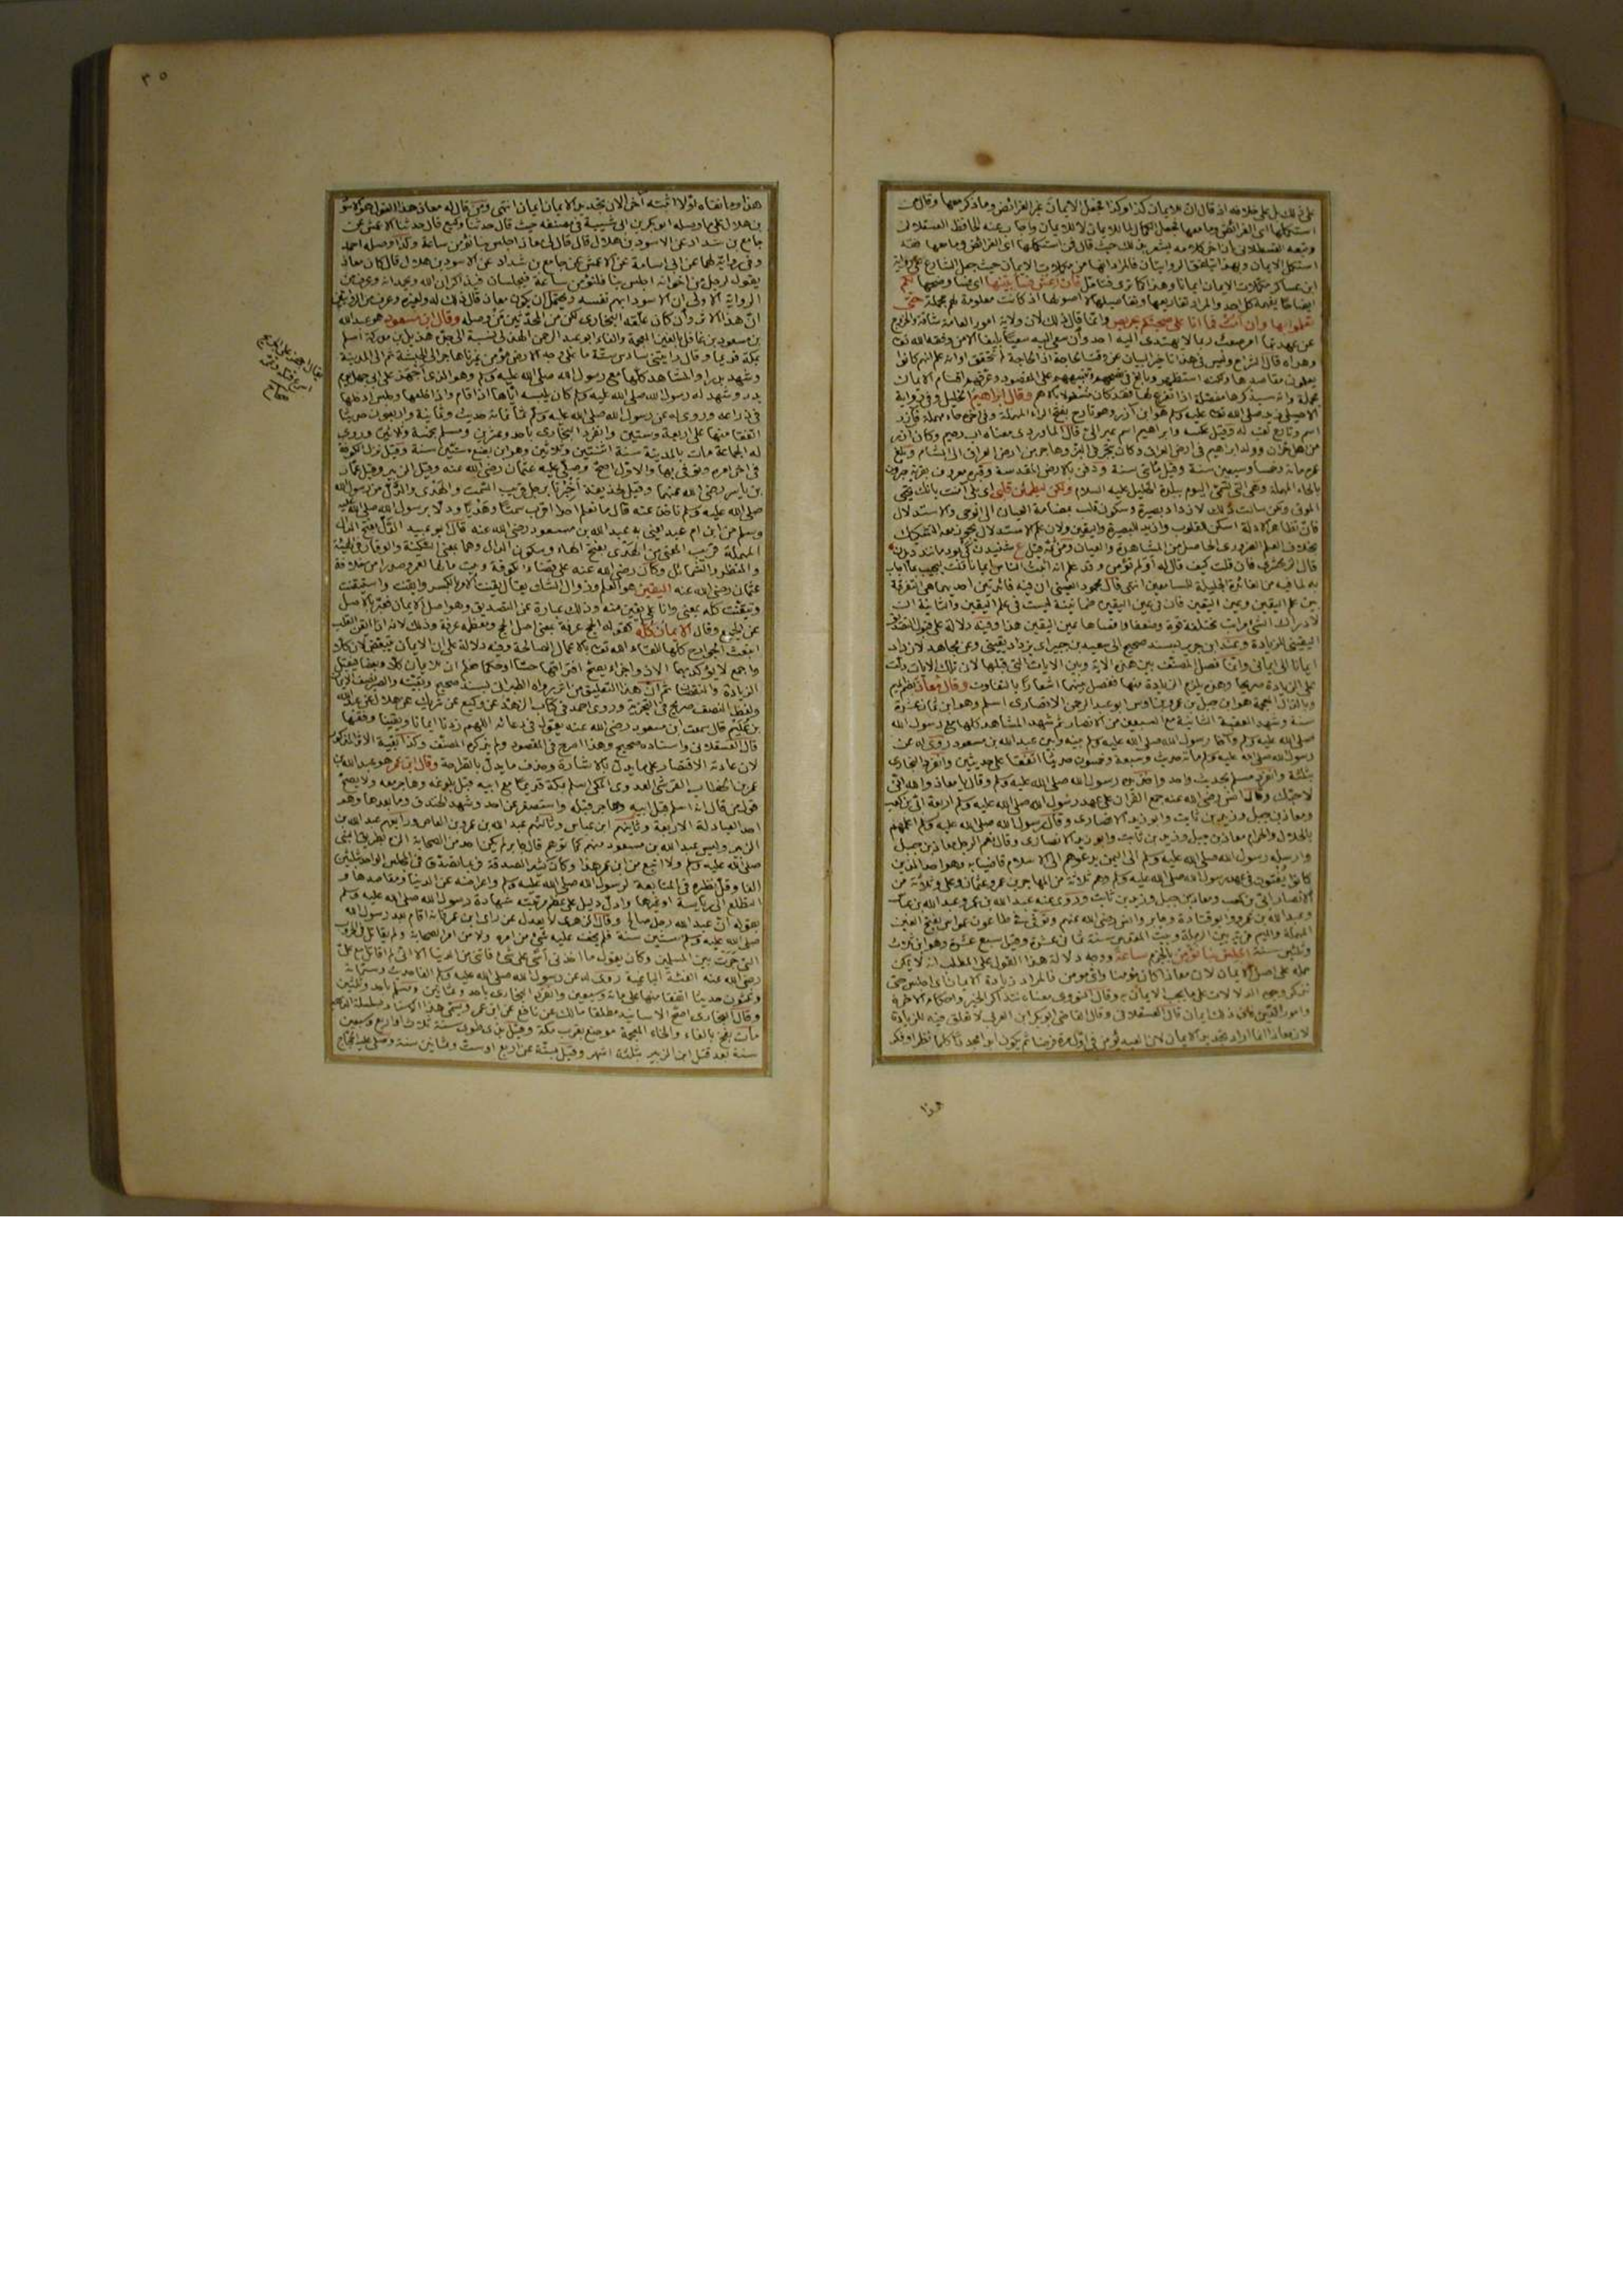 على ذلك بل على خلافه اذ قال ان للايمان كذا وكذا فجعل الايمان غير الفرائض وما ذكر معها وقال من
استكملها اى الفرائض وما معها فجعل الكمال لما للايمان لا للايمان واجاب عنه الحافظ العسقلانى
وتبعه القسطلانى بان اخر كلامه يشعر بذلك حيث قال فمن استكملها اى الفرائض وما معها فقد
استكمل الايمان وبهذا تتفق الروايتان فالمراد انها من مكملات الايمان حيث جعل الشارع على رواية
ابن عساكر مكملات الايمان ايمانا وهذا كما ترى فتامل فان اعش فسابينها اى فسا وضحها لكم
ايضاحا يفهمه كل احد والمراد تفاريعها وتفاصيلها لا اصولها اذ كانت معلومة لهم مجملة حتى
تعملوا بها وان امت فما انا على صحبتكم بحريص وانما قال ذلك لان ولاية امور العامة شاقة والخروج
يعلمون مقاصدها ولكنه استظهر وبالغ فى نصحهم وتنبيههم على المقصود وعرفهم اقسام الايمان
مجملة وانه سيذكرها مفصلة اذا تفرغ لها فقد كان مشغولا بالاهم وقال ابراهيم الخليل وفى رواية
الاصيلى زيد صلى الله تعالى عليه وسلم هو ابن آزر وهو تارح بفتح الراء المهملة وفى اخره حاء مهملة فآزر
اسم وتارح لقب له وقيل عكسه وابراهيم اسم عبرانى قال الماوردى معناه اب رحيم وكان آزر
من اهل حران وولد ابراهيم فى ارض العراق وكان يتجر فى البز وهاجر من ارض العراق الى الشام وبلغ
عمره مائة وخمسا وسبعين سنة وقيل مائتى سنة ودفن بالارض المقدسة وقبره معروف بقرية حبرون
بالحاء المهملة وهى التى تسمى اليوم ببلدة الخليل عليه السلام ولكن ليطمئن قلبى اى بلى آمنت بانك تحيى
الموتى ولكن سالت ذلك لازداد بصيرة وسكون قلب بمضامة العيان الى الوحى والاستدلال
فان تظاهر الادلة اسكن للقلوب وازيد للبصيرة واليقين ولان علم الاستدلال يجوز معه التشكيك
بخلاف العلم الضرورى الحاصل من المشاهدة والعيان ومن ثمة قيل ع شنيدن كى بود مانند ديدن
قال الزمخشرى فان قلت كيف قال له اولم تؤمن وقد علم انه اثبت الناس ايمانا قلت ليجيب بما اجاب
به لما فيه من الفائدة الجليلة للسامعين انتهى قال محمود العينى ان فيه فائدتين احديهما هى التفرقة
بين علم اليقين وعين اليقين فان فى عين اليقين طمانينة ليست فى علم اليقين والثانية ان
لادراك الشئ مراتب مختلفة قوة وضعفا واقصاها عين اليقين هذا وفيه دلالة على قبول التصديق
اليقينى للزيادة وعند ابن جرير بسند صحيح الى سعيد بن جبير اى يزداد يقينى وعن مجاهد لازداد
ايمانا الى ايمانى وانما فصل المصنف بين هذه الاية وبين الايات التى قبلها لان تلك الايات دلت
على الزيادة صريحا وهذه يلزم الزيادة منها ففصل بينهما اشعارا بالتفاوت وقال معاذ بضم الميم
وبالذال المعجمة هو ابن جبل بن عمرو بن اوس ابو عبد الرحمن الانصارى اسلم وهو ابن ثمان عشرة
سنة وشهد العقبة الثانية مع السبعين من الانصار ثم شهد المشاهد كلها مع رسول الله
صلى الله عليه وسلم وآخا رسول الله صلى الله عليه وسلم بينه وبين عبد الله بن مسعود روى له عن
رسول الله صلى الله عليه وسلم مائة حديث وسبعة وخمسون حديثا اتفقا على حديثين وانفرد البخارى
بثلثة وانفرد مسلم بحديث واحد واخذ بيده رسول الله صلى الله عليه وسلم وقال يا معاذ والله انى
لاحبك وقال انس رضى الله عنه جمع القران على عهد رسول الله صلى الله عليه وسلم اربعة ابى بن كعب
ومعاذ بن جبل وزيد بن ثابت وابو زيد الانصارى وقال رسول الله صلى الله عليه وسلم اعلمهم
بالحلال والحرام معاذ بن جبل وزيد بن ثابت وابو زيد الانصارى وقال نعم الرجل معاذ بن جبل
وارسله رسول الله صلى الله عليه وسلم الى اليمن يدعوهم الى الاسلام قاضيا به وهو احد الذين
كانوا يفتون فى عهد رسول الله صلى الله عليه وسلم وهم ثلاثة من المهاجرين عمر وعثمان وعلى وثلاثة من
الانصار ابى بن كعب ومعاذ بن جبل وزيد بن ثابت وروى عنه عبد الله بن عمر وعبد الله بن عباس
وعبد الله بن عمرو وابو قتادة وجابر وانس رضى الله عنهم وتوفى فى طاعون عمواس بفتح العين
المهملة والميم قرية بين الرملة وبيت المقدس سنة ثمانى عشرة وقيل سبع عشرة وهو ابن ثلاث
وثلثين سنة اجلس بنا نؤمن بالجزم ساعة ووجه دلالة هذا القول على المطلب انه لا يمكن
حمله على اصل الايمان لان معاذا كان مؤمنا واى مؤمن فالمراد زيادة الايمان اى اجلس حتى
نذكر وجوه الدلالات على ما يجب الايمان به وقال النووى معناه نتذاكر الخير واحكام الاخرة
وامور الدين فان ذلك ايمان قال العسقلانى وقال القاضى ابو بكر ابن العربى لا تعلق فيه للزيادة
لان معاذا انما اراد تجديد الايمان لان العبد يؤمن فى اول مرة فرضا ثم يكون ابدا مجددا كلما نظر او فكر
هذا
٣٥
هذا وما نفاه اولا اثبته آخرا لان تجديد الايمان ايمان انتهى ومن قال له معاذ هذا القول هو الاسود
بن هلال على ما وصله ابو بكر بن ابى شيبة فى مصنفه حيث قال حدثنا وكيع قال حدثنا الاعمش عن
جامع بن شداد عن الاسود بن هلال قال قال لى معاذ اجلس بنا نؤمن ساعة وكذا وصله احمد
وفى رواية لهما عن ابى اسامة عن الاعمش عن جامع بن شداد عن الاسود بن هلال قال كان معاذ
يقول لرجل من اخوانه اجلس بنا فلنؤمن ساعة فيجلسان فيذكران الله ويحمدانه وعرف من
الرواية الاولى ان الاسود ابهم نفسه ويحتمل ان يكون معاذ قال ذلك له ولغيره وعرف من
ان هذا الاثر وان كان علقه البخارى لكن من المحدثين من وصله وقال ابن مسعود هو عبد الله
بن مسعود بن غافل بالغين المعجمة والفاء ابو عبد الرحمن الهذلى نسبة الى جده هذيل بن مدركة اسلم
بمكة قديما وقال رايتنى سادس ستة ما على وجه الارض مؤمن غيرنا هاجر الى الحبشة ثم الى المدينة
وشهد بدرا والمشاهد كلها مع رسول الله صلى الله عليه وسلم وهو الذى اجهز على ابى جهل يوم
بدر وشهد له رسول الله صلى الله عليه وسلم كان يلبسه اياها اذا قام واذا خلعها وجلس ادخلها
فى ذراعه وروى له عن رسول الله صلى الله عليه وسلم ثمانمائة حديث وثمانية واربعون حديثا
اتفقا منها على اربعة وستين وانفرد البخارى باحد وعشرين ومسلم بخمسة وثلاثين وروى
له الجماعة مات بالمدينة سنة اثنتين وثلاثين وهو ابن بضع وستين سنة وقيل نزل الكوفة
فى اخر امره وتوفى بها والاول اصح وصلى عليه عثمان رضى الله عنه وقيل الزبير وقيل عمار
بن ياسر رضى الله عنهما وقيل لحذيفة اخبرنا برجل قريب السمت والهدى والدل من رسول الله
صلى الله عليه وسلم ناخذ عنه قال ما نعلم احدا اقرب سمتا وهديا ودلا برسول الله صلى الله عليه
وسلم من ابن ام عبد يعنى به عبد الله بن مسعود رضى الله عنه قال ابو عبيد الدل بفتح الدال
المهملة قريب المعنى من الهدى بفتح الهاء وسكون الدال وهما بمعنى السكينة والوقار فى الهيئة
والمنظر والشمائل وكان رضى الله عنه على قضاء الكوفة وبيت مالها لعمر وصدرا من خلافة
عثمان رضى الله عنه اليقين هو العلم وزوال الشك يقال يقنت الامر بالكسر وايقنت واستيقنت
وتيقنت كله بمعنى وانا على يقين منه وذلك عبارة عن التصديق وهو اصل الايمان فعبر بالاصل
عن الجميع وقال الايمان كله كقوله الحج عرفة بمعنى اصل الحج ومعظمه عرفة وذلك لانه اذا ايقن القلب
انبعثت الجوارح كلها للقاء الله تعالى بالاعمال الصالحة وفيه دلالة على ان الايمان يتبعض لان كلا
واجمع لا يؤكد بهما الا ذو اجزاء يصح افتراقها حسا او حكما فعلم ان للايمان كلا وبعضا فيقبل
الزيادة والنقصان ثم ان هذا التعليق من اثر رواه الطبرانى بسند صحيح وبقيته والصبر نصف الايمان
ولفظ النصف صريح فى التجزئة وروى احمد فى كتاب الزهد عن وكيع عن شريك عن هلال عن عبد الله
بن عكيم قال سمعت ابن مسعود رضى الله عنه يقول فى دعائه اللهم زدنا ايمانا ويقينا وفقها
قال العسقلانى واسناده صحيح وهذا اصرح فى المقصود ولم يذكره المصنف وكذا بقية الاثر المذكور
لان عادته الاقتصار على ما يدل بالاشارة وحذف ما يدل بالصراحة وقال ابن عمر هو عبد الله بن
عمر بن الخطاب القرشى العدوى المكى اسلم بمكة قديما مع ابيه قبل بلوغه وهاجر معه ولا يصح
قول من قال انه اسلم قبل ابيه وهاجر قبله واستصغر عن احد وشهد الخندق وما بعدها وهو
احد العبادلة الاربعة وثانيهم ابن عباس وثالثهم عبد الله بن عمرو بن العاص ورابعهم عبد الله بن
الزبير وليس عبد الله بن مسعود منهم كما توهم قال جابر لم يكن احد من الصحابة الزم لطريق النبى
صلى الله عليه وسلم ولا اتبع من ابن عمر هذا وكان كثير الصدقة فربما تصدق فى المجلس الواحد بثلثين
الفا وقل نظيره فى المتابعة لرسول الله صلى الله عليه وسلم واعراضه عن الدنيا ومقاصدها و
التطلع الى رياسة او غيرها وادل دليل على عظم مرتبته شهادة رسول الله صلى الله عليه وسلم
بقوله ان عبد الله رجل صالح وقال الزهرى لا يعدل عن راى ابن عمر فانه اقام بعد رسول الله
صلى الله عليه وسلم ستين سنة فلم يخف عليه شئ من امره ولا من امر الصحابة ولم يقاتل فى الحروب
التى جرت بين المسلمين وكان يقول ما اخذنى اسى على شئ فاتنى من الدنيا الا انى لم اقاتل مع على
رضى الله عنه الفئة الباغية روى له عن رسول الله صلى الله عليه وسلم الفا حديث وستمائة
وثلثون حديثا اتفقا منها على مائة وسبعين وانفرد البخارى باحد وثمانين ومسلم باحد وثلثين
وقال البخارى اصح الاسانيد مطلقا مالك عن نافع عن ابن عمر ويسمى هذا الاسناد سلسلة الذهب
مات بفخ بالفاء والخاء المعجمة موضع بقرب مكة وقيل بذى طوى سنة ثلاث او اربع وسبعين
سنة بعد قتل ابن الزبير بثلثة اشهر وقيل بستة عن اربع او ست وثمانين سنة وصلى عليه الحجاج
يقال اجهز على الجريح
اسرع قتله